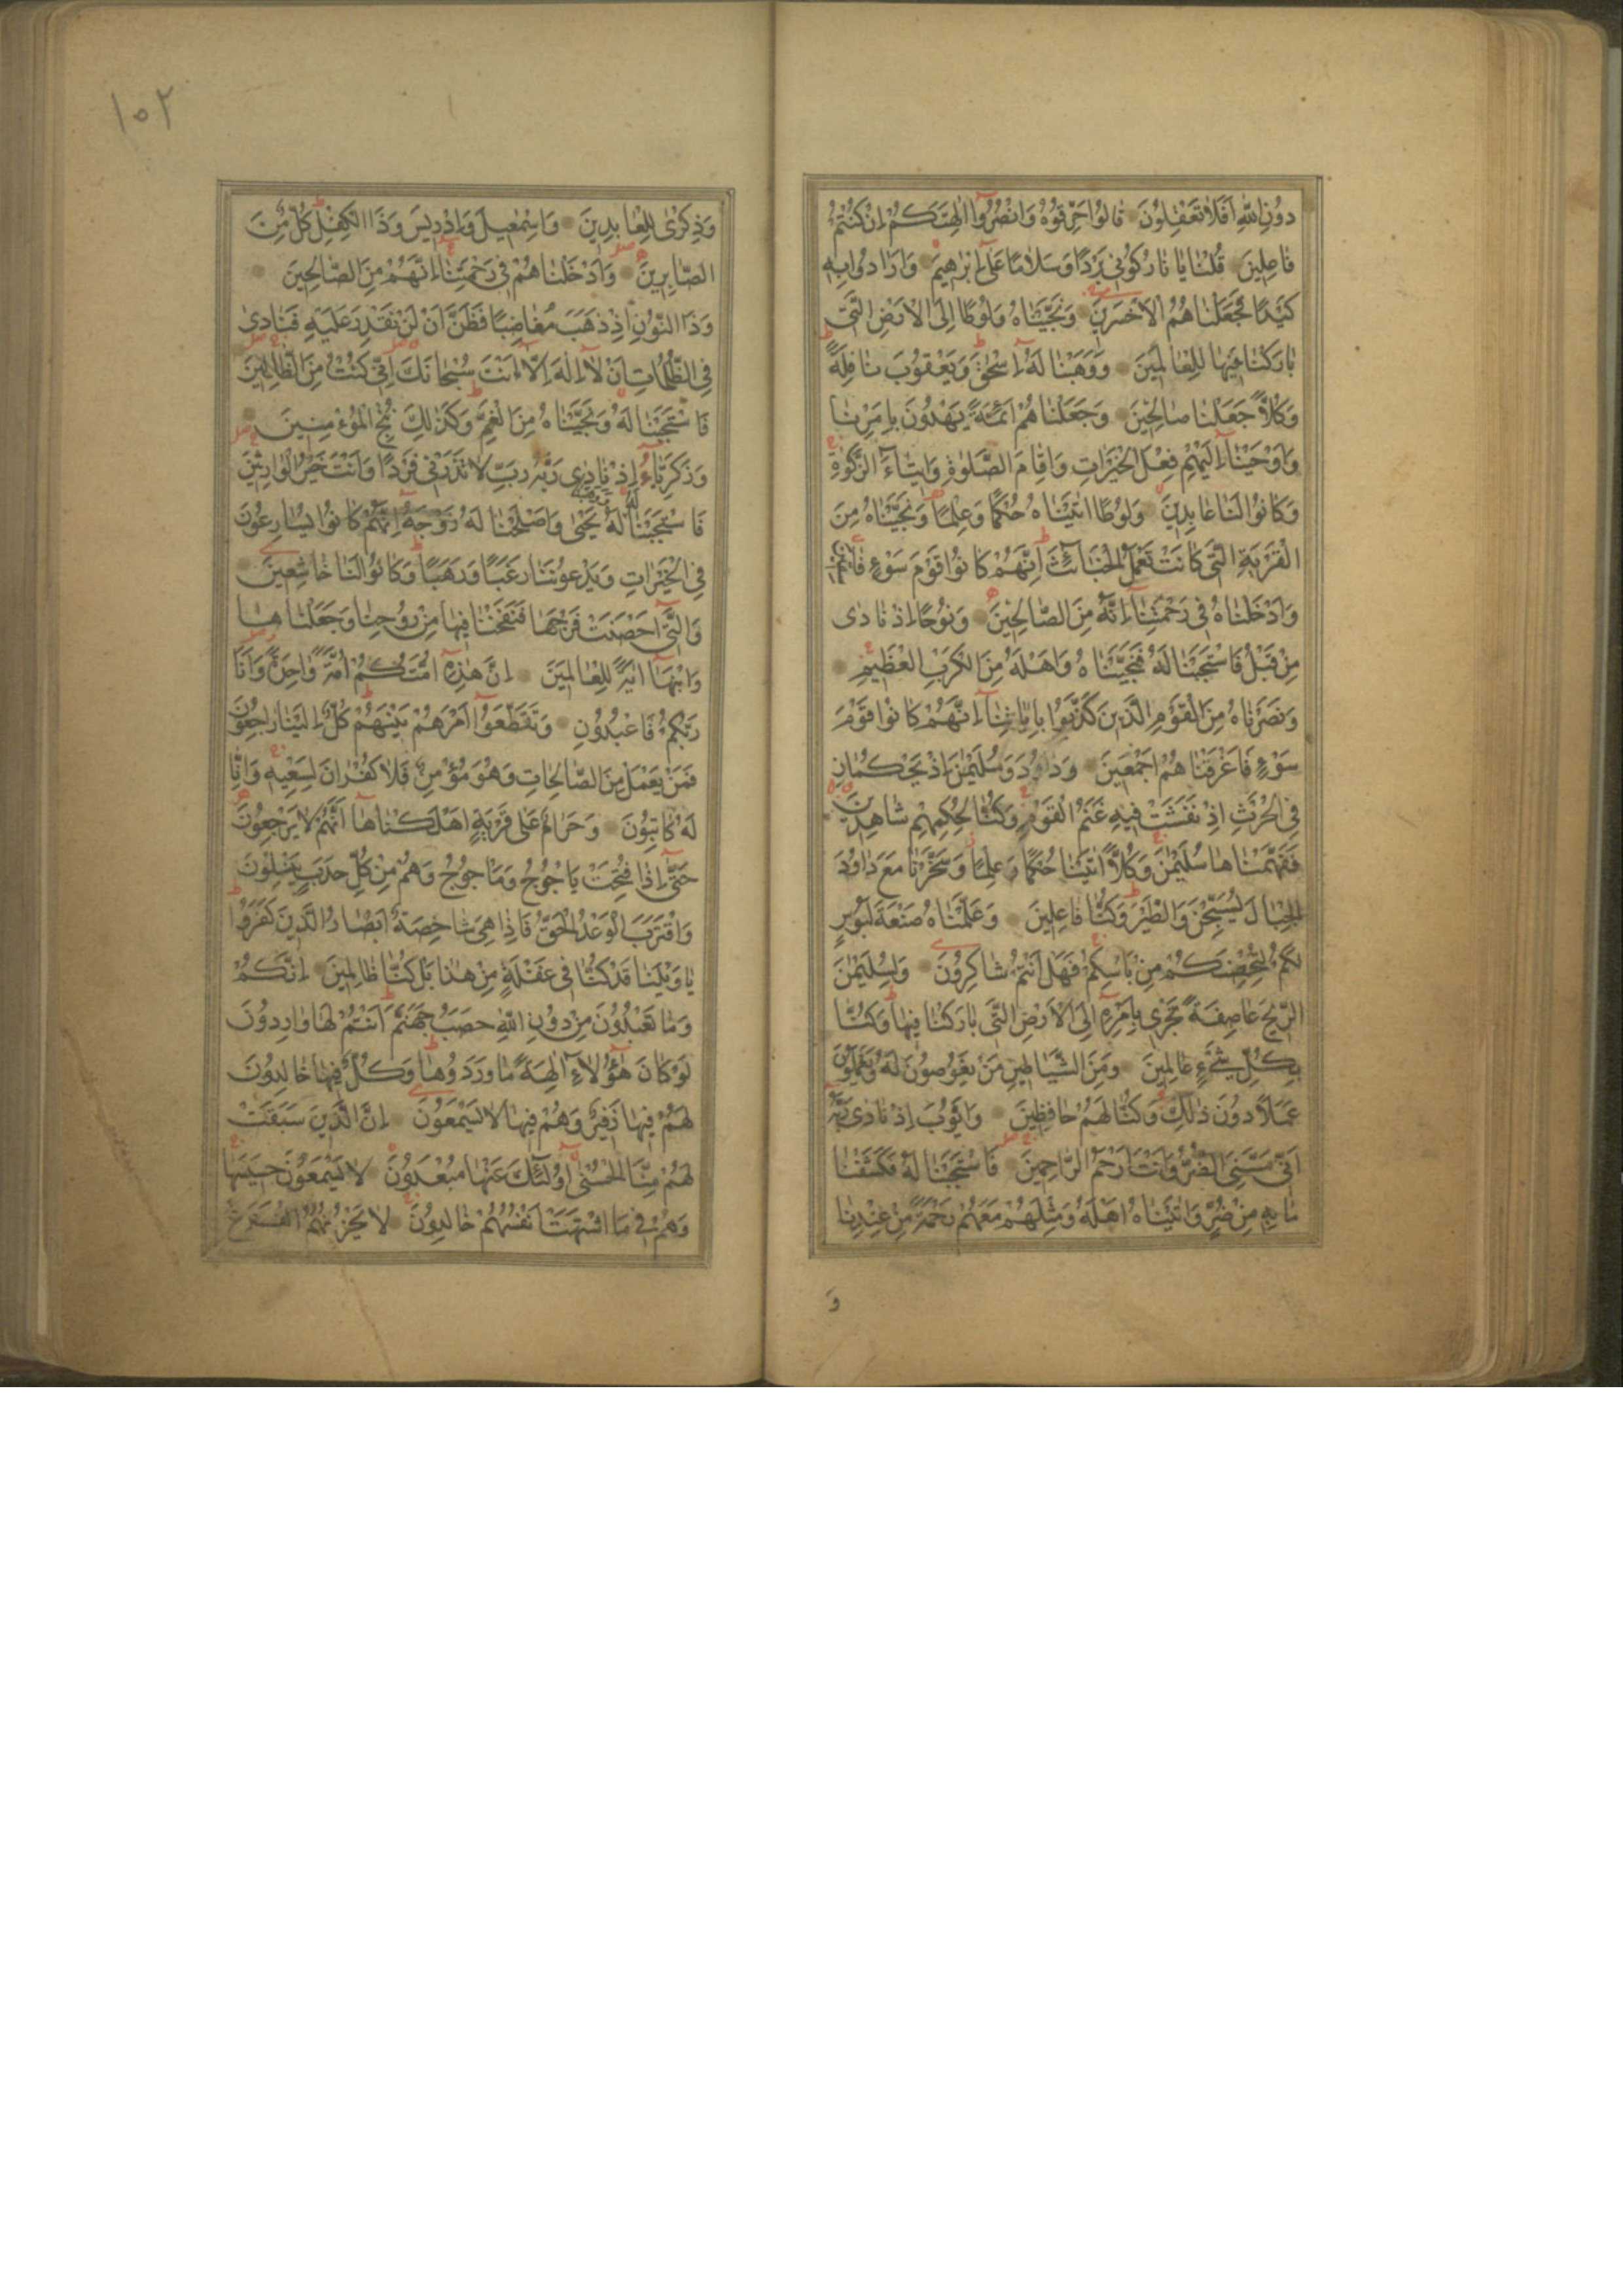 دُونِ اللّٰهِ اَفَلَا تَعْقِلُونَ قَالُوا حَرِّقُوهُ وَانْصُرُوا اٰلِهَتَكُمْ اِنْ كُنْتُمْ
فَاعِلِينَ قُلْنَا يَا نَارُ كُونِي بَرْدًا وَسَلَامًا عَلٰى اِبْرٰهِيمَ وَاَرَادُوا بِهِ
كَيْدًا فَجَعَلْنَاهُمُ الْاَخْسَرِينَ وَنَجَّيْنَاهُ وَلُوطًا اِلَى الْاَرْضِ الَّتِي
بَارَكْنَا فِيهَا لِلْعَالَمِينَ وَوَهَبْنَا لَهُ اِسْحٰقَ وَيَعْقُوبَ نَافِلَةً
وَكُلًّا جَعَلْنَا صَالِحِينَ وَجَعَلْنَاهُمْ اَئِمَّةً يَهْدُونَ بِاَمْرِنَا
وَاَوْحَيْنَا اِلَيْهِمْ فِعْلَ الْخَيْرَاتِ وَاِقَامَ الصَّلٰوةِ وَاِيتَاءَ الزَّكٰوةِ
وَكَانُوا لَنَا عَابِدِينَ وَلُوطًا اٰتَيْنَاهُ حُكْمًا وَعِلْمًا وَنَجَّيْنَاهُ مِنَ
الْقَرْيَةِ الَّتِي كَانَتْ تَعْمَلُ الْخَبَائِثَ اِنَّهُمْ كَانُوا قَوْمَ سَوْءٍ فَاسِقِينَ
وَاَدْخَلْنَاهُ فِي رَحْمَتِنَا اِنَّهُ مِنَ الصَّالِحِينَ وَنُوحًا اِذْ نَادٰى
مِنْ قَبْلُ فَاسْتَجَبْنَا لَهُ فَنَجَّيْنَاهُ وَاَهْلَهُ مِنَ الْكَرْبِ الْعَظِيمِ
وَنَصَرْنَاهُ مِنَ الْقَوْمِ الَّذِينَ كَذَّبُوا بِاٰيَاتِنَا اِنَّهُمْ كَانُوا قَوْمَ
سَوْءٍ فَاَغْرَقْنَاهُمْ اَجْمَعِينَ وَدَاوُدَ وَسُلَيْمٰنَ اِذْ يَحْكُمَانِ
فِي الْحَرْثِ اِذْ نَفَشَتْ فِيهِ غَنَمُ الْقَوْمِ وَكُنَّا لِحُكْمِهِمْ شَاهِدِينَ
فَفَهَّمْنَاهَا سُلَيْمٰنَ وَكُلًّا اٰتَيْنَا حُكْمًا وَعِلْمًا وَسَخَّرْنَا مَعَ دَاوُدَ
الْجِبَالَ يُسَبِّحْنَ وَالطَّيْرَ وَكُنَّا فَاعِلِينَ وَعَلَّمْنَاهُ صَنْعَةَ لَبُوسٍ
لَكُمْ لِتُحْصِنَكُمْ مِنْ بَأْسِكُمْ فَهَلْ اَنْتُمْ شَاكِرُونَ وَلِسُلَيْمٰنَ
الرِّيحَ عَاصِفَةً تَجْرِي بِاَمْرِهِ اِلَى الْاَرْضِ الَّتِي بَارَكْنَا فِيهَا وَكُنَّا
بِكُلِّ شَيْءٍ عَالِمِينَ وَمِنَ الشَّيَاطِينِ مَنْ يَغُوصُونَ لَهُ وَيَعْمَلُونَ
عَمَلًا دُونَ ذٰلِكَ وَكُنَّا لَهُمْ حَافِظِينَ وَاَيُّوبَ اِذْ نَادٰى رَبَّهُ
اَنِّي مَسَّنِيَ الضُّرُّ وَاَنْتَ اَرْحَمُ الرَّاحِمِينَ فَاسْتَجَبْنَا لَهُ فَكَشَفْنَا
مَا بِهِ مِنْ ضُرٍّ وَاٰتَيْنَاهُ اَهْلَهُ وَمِثْلَهُمْ مَعَهُمْ رَحْمَةً مِنْ عِنْدِنَا
وَ
١٥٢
وَذِكْرٰى لِلْعَابِدِينَ وَاِسْمٰعِيلَ وَاِدْرِيسَ وَذَا الْكِفْلِ كُلٌّ مِنَ
الصَّابِرِينَ وَاَدْخَلْنَاهُمْ فِي رَحْمَتِنَا اِنَّهُمْ مِنَ الصَّالِحِينَ
وَذَا النُّونِ اِذْ ذَهَبَ مُغَاضِبًا فَظَنَّ اَنْ لَنْ نَقْدِرَ عَلَيْهِ فَنَادٰى
فِي الظُّلُمَاتِ اَنْ لَا اِلٰهَ اِلَّا اَنْتَ سُبْحَانَكَ اِنِّي كُنْتُ مِنَ الظَّالِمِينَ
فَاسْتَجَبْنَا لَهُ وَنَجَّيْنَاهُ مِنَ الْغَمِّ وَكَذٰلِكَ نُنْجِي الْمُؤْمِنِينَ
وَزَكَرِيَّاءَ اِذْ نَادٰى رَبَّهُ رَبِّ لَا تَذَرْنِي فَرْدًا وَاَنْتَ خَيْرُ الْوَارِثِينَ
فَاسْتَجَبْنَا لَهُ يَحْيٰى وَاَصْلَحْنَا لَهُ زَوْجَهُ اِنَّهُمْ كَانُوا يُسَارِعُونَ
فِي الْخَيْرَاتِ وَيَدْعُونَنَا رَغَبًا وَرَهَبًا وَكَانُوا لَنَا خَاشِعِينَ
وَالَّتِي اَحْصَنَتْ فَرْجَهَا فَنَفَخْنَا فِيهَا مِنْ رُوحِنَا وَجَعَلْنَاهَا
وَابْنَهَا اٰيَةً لِلْعَالَمِينَ اِنَّ هٰذِهِ اُمَّتُكُمْ اُمَّةً وَاحِدَةً وَاَنَا
رَبُّكُمْ فَاعْبُدُونِ وَتَقَطَّعُوا اَمْرَهُمْ بَيْنَهُمْ كُلٌّ اِلَيْنَا رَاجِعُونَ
فَمَنْ يَعْمَلْ مِنَ الصَّالِحَاتِ وَهُوَ مُؤْمِنٌ فَلَا كُفْرَانَ لِسَعْيِهِ وَاِنَّا
لَهُ كَاتِبُونَ وَحَرَامٌ عَلٰى قَرْيَةٍ اَهْلَكْنَاهَا اَنَّهُمْ لَا يَرْجِعُونَ
حَتّٰى اِذَا فُتِحَتْ يَاْجُوجُ وَمَاْجُوجُ وَهُمْ مِنْ كُلِّ حَدَبٍ يَنْسِلُونَ
وَاقْتَرَبَ الْوَعْدُ الْحَقُّ فَاِذَا هِيَ شَاخِصَةٌ اَبْصَارُ الَّذِينَ كَفَرُوا
يَا وَيْلَنَا قَدْ كُنَّا فِي غَفْلَةٍ مِنْ هٰذَا بَلْ كُنَّا ظَالِمِينَ اِنَّكُمْ
وَمَا تَعْبُدُونَ مِنْ دُونِ اللّٰهِ حَصَبُ جَهَنَّمَ اَنْتُمْ لَهَا وَارِدُونَ
لَوْ كَانَ هٰؤُلَاءِ اٰلِهَةً مَا وَرَدُوهَا وَكُلٌّ فِيهَا خَالِدُونَ
لَهُمْ فِيهَا زَفِيرٌ وَهُمْ فِيهَا لَا يَسْمَعُونَ اِنَّ الَّذِينَ سَبَقَتْ
لَهُمْ مِنَّا الْحُسْنٰى اُولٰئِكَ عَنْهَا مُبْعَدُونَ لَا يَسْمَعُونَ حَسِيسَهَا
وَهُمْ فِي مَا اشْتَهَتْ اَنْفُسُهُمْ خَالِدُونَ لَا يَحْزُنُهُمُ الْفَزَعُ